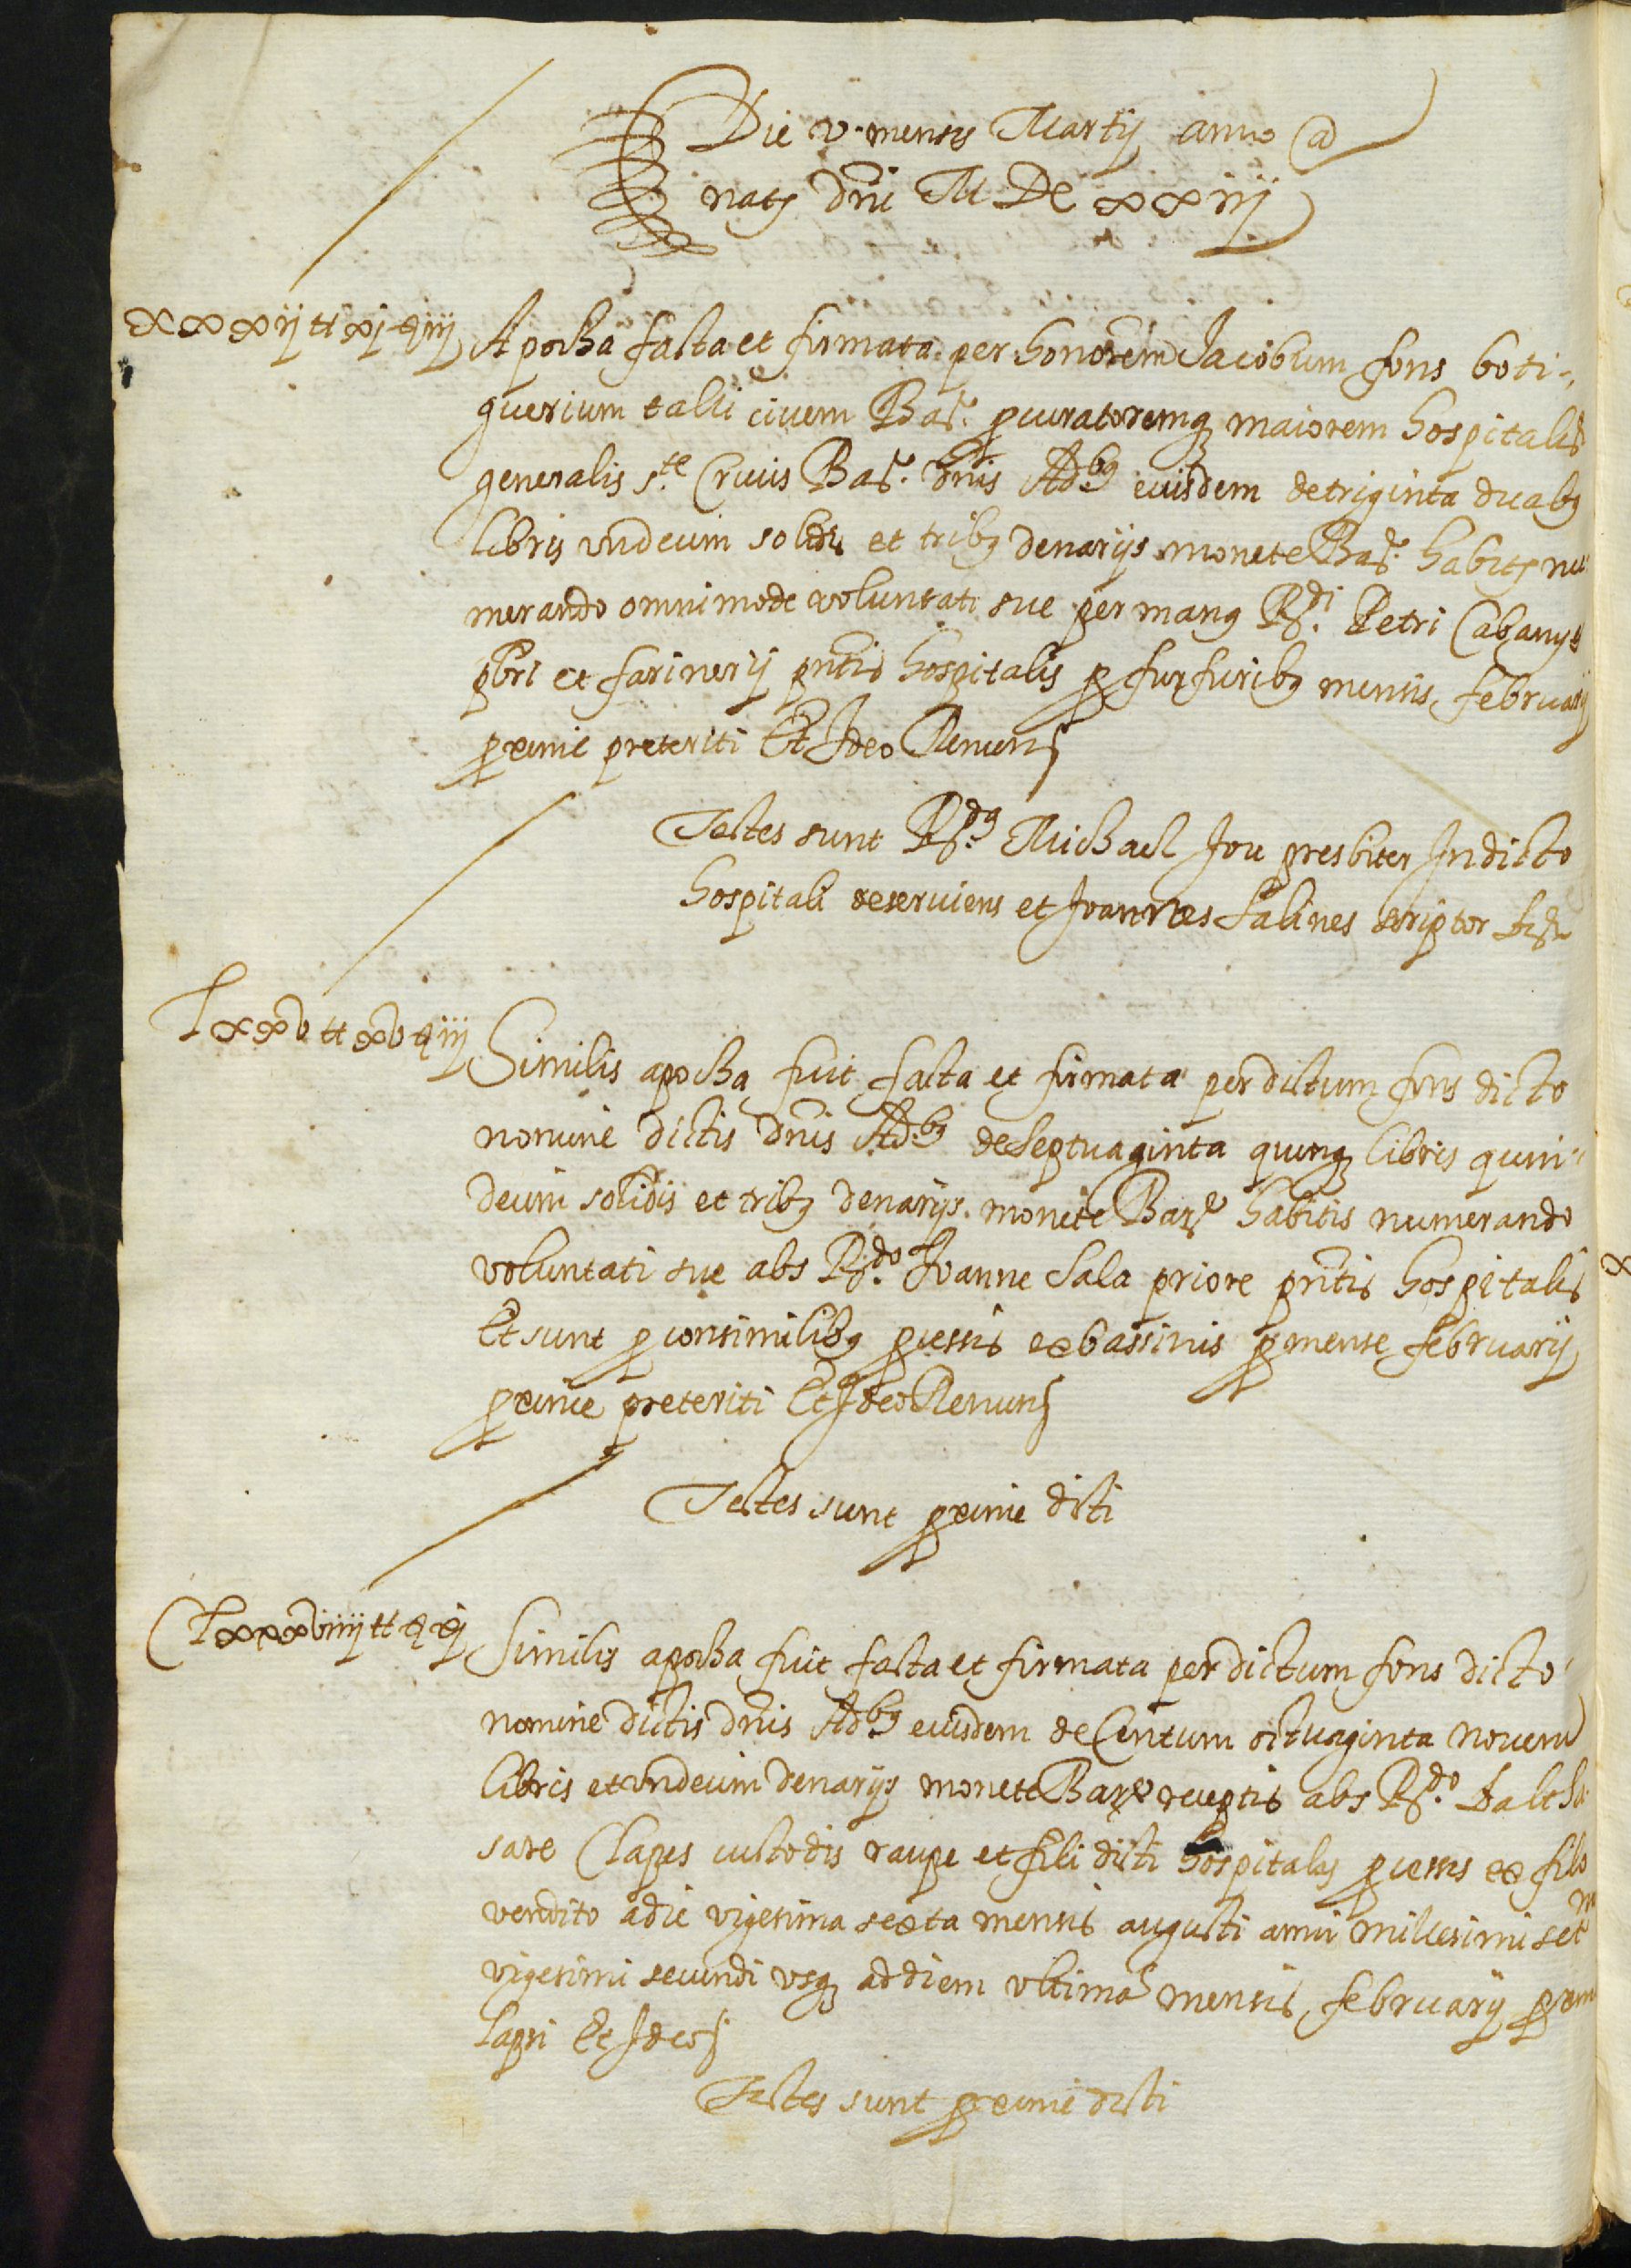 Die v. mensis Martij anno @
natts Dñi M DC xxiij
xxxij tt xj ß iij
Apocha facta et firmata per honorem Jacobum fons boti-
querium talli civem Bar. procuratoremq maiorem hospitalis
generalis s.te Crucis Bar. dñis Ad.bq eiusdem de triginta duabq
libris undecim solidis et tribq denarijs monete Bar. habitis nu-
merando omnimode voluntati sue per manq R.di Petri Cabanyes
pbri et farinerij pntis hospitalis p furfuribq mensis februarij
proxime preteriti Et Ideo Renuns
Testes sunt R.dq Michael Jou presbiter In dicto
hospitali deserviens et Joannes Salines scriptor
Lxxv tt xv ß iij
Similis apocha fuit facta et firmata per dictum fons dicto
nomine dictis dñis Ad.bq de septuaginta quinq libris quin-
decim solidis et tribq denarijs monete Bare habitis numerando
voluntati sue abs R.do Joanne Sala priore pntis hospitalis
Et sunt p consimilibq processis ex bassinis p mense februarij
proxime preteriti Et Ideo Renuns
Testes sunt proxime dicti
CLxxxviiij tt ß xj
Similis apocha fuit facta et firmata per dictum fons dicto
nomine dictis dñis Adbq eiusdem de Centum octuaginta novem
libris et undecim denarijs monete Bare receptis abs R.do Baltha-
sare Clapes custodis raupe et fili dicti hospitalis processis ex filo
vendito a die vigesima sexta mensis augusti anni millesimi sex
vigesimi secundi usq ad diem ultima mensis februarij proxime
lapsi Et Ideo
Testes sunt proxime dicti